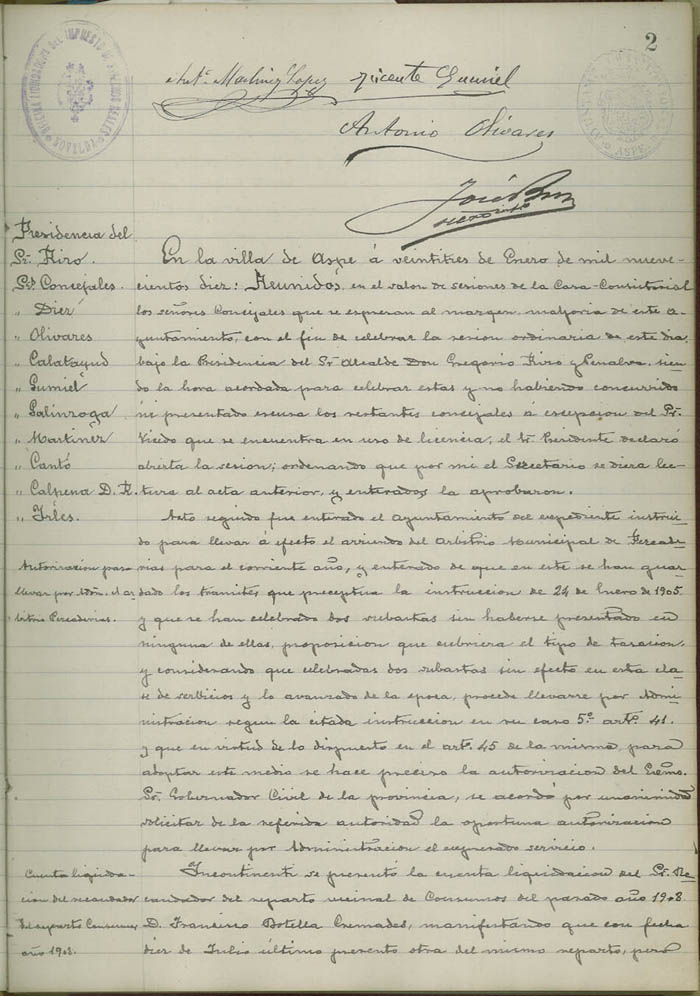 2
Antº Martinez Lopez Vicente Gumiel
Antonio Olivares
José
secretario
Presidencia del
Sr. Kiro.
Srs Concejales.
" Diez
" Olivares
" Calatayud
" Gumiel
" Galinzoga
" Martinez
" Cantó
" Calpena D. F.
" Irles.
En la villa de Aspe á veintitres de Enero de mil nueve-
cientos diez: Reunidos, en el salon de sesiones de la Casa-Consistorial
los señores Concejales que se espresan al margen, mayoria de este A-
yuntamiento, con el fin de celebrar la sesion ordinaria de este dia,
bajo la Presidencia del Sr Alcalde Don Gregorio Kiro y Penalva, sien-
do la hora acordada para celebrar estas y no habiendo concurrido
ni presentado escusa los restantes concejales á escepcion del Sr.
Vicedo que se encuentra en uso de licencia, el Sr. Presidente declaró
abierta la sesion; ordenando que por mi el Secretario se diera lec-
tura al acta anterior, y enterados la aprobaron.
Autorizacion para
llevar por Admn. el ar-
bitrio Pescaderias.
Acto seguido fue enterado el Ayuntamiento del espediente instrui-
do para llevar á efecto el arriendo del Arbitrio Municipal de Pescade-
rias para el corriente año, y enterado de que en este se han guar-
dado los tramites que preceptua la instruccion de 24 de Enero de 1905.
y que se han celebrado dos subastas sin haberse presentado en
ninguna de ellas, proposicion que cubriera el tipo de tasacion.
y considerando que celebradas dos subastas sin efecto en esta cla-
se de servicios y lo avanzado de la epoca, procede llevarse por Admi-
nistracion segun la citada instruccion en su caso 5º artº. 41.
y que en virtud de lo dispuesto en el artº. 45 de la misma, para
adoptar este medio se hace preciso la autorizacion del Excmo.
Sr. Gobernador Civil de la provincia, se acordó por unanimidad
solicitar de la referida autoridad la oportuna autorizacion
para llevar por Administracion el espresado servicio.
Cuenta liquida-
cion del recaudador
del reparto Consumos
año 1908.
Incontinenti se presentó la cuenta liquidacion del Sr. Re-
caudador del reparto vecinal de Consumos del pasado año 1908.
D. Francisco Botella Cremades, manifestando que con fecha
diez de Julio último presentó otra del mismo reparto, pero